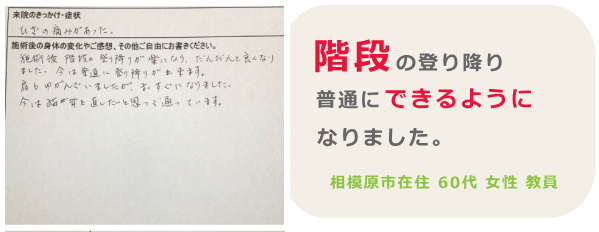 来院のきっかけ・症状
ひざの痛みがあった。
施術後の身体の変化やご感想、その他ご自由にお書きください。
施術後 階段の登り降りが楽になり、だんだんと良くなり
ました。今は普通に登り降りが出来ます。
肩もゆがんでいましたが、まっすぐになりました。
今は猫背を直したいと思って通っています。
階段の登り降り
普通にできるように
なりました。
相模原市在住 60代 女性 教員